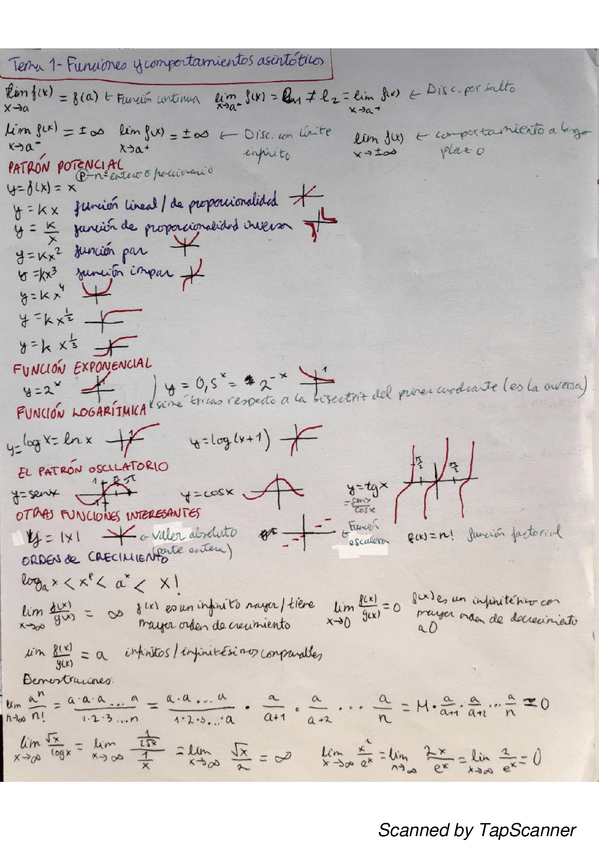 Tema 1- Funciones y comportamientos asintóticos
lim x→a f(x) = f(a) ← Función continua lim x→a⁻ f(x) = l₁ ≠ l₂ = lim x→a⁺ f(x) ← Disc. por salto
lim x→a⁻ f(x) = ±∞ lim x→a⁺ f(x) = ±∞ ← Disc. con límite infinito lim x→±∞ f(x) ← comportamiento a largo plazo
PATRÓN POTENCIAL
y = f(x) = x^p - nº entero o fraccionario
y = kx función lineal / de proporcionalidad
y = k/x función de proporcionalidad inversa
y = kx² función par
y = kx³ función impar
y = kx⁴
y = kx^(1/2)
y = kx^(1/3)
FUNCIÓN EXPONENCIAL
y = 2^x y = 0,5^x = 2^-x
simétricas respecto a la bisectriz del primer cuadrante (es la inversa)
FUNCIÓN LOGARÍTMICA
y = log x = ln x y = log(x+1)
EL PATRÓN OSCILATORIO
y = senx y = cosx y = tgx = senx/cosx
π/2 π 1 -π/2 π/2
OTRAS FUNCIONES INTERESANTES
y = |x| ← valor absoluto (parte entera) ← Función escalera f(x) = n! función factorial
ORDEN DE CRECIMIENTO
logₐ x < x^p < a^x < x!
lim x→∞ f(x)/g(x) = ∞ f(x) es un infinito mayor / tiene mayor orden de crecimiento lim x→0 f(x)/g(x) = 0 f(x) es un infinitésimo con mayor orden de decrecimiento a 0
lim f(x)/g(x) = a infinitos / infinitésimos comparables
Demostraciones:
lim n→∞ aⁿ/n! = a·a·a...a/1·2·3...n = a·a...a/1·2·3...a · a/a+1 · a/a+2 ... a/n = M · a/a+1 · a/a+2 ... a/n = 0
lim x→∞ √x/logx = lim x→∞ (1/2√x)/(1/x) = lim x→∞ √x/2 = ∞ lim x→∞ x²/e^x = lim x→∞ 2x/e^x = lim x→∞ 2/e^x = 0
Scanned by TapScanner